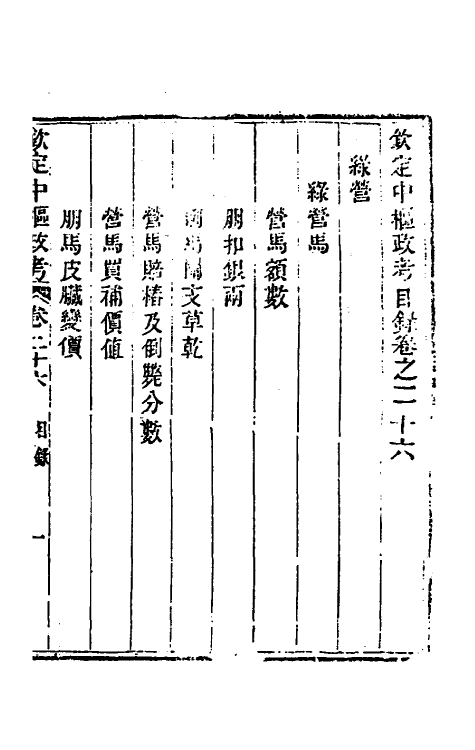 欽定中樞政考目錄卷之二十六
綠營
綠營馬
營馬額數
朋扣銀兩
馬關支草乾
營馬賠樁及倒斃分數
營馬買補價值
朋馬皮臟變價
欽定中樞政考 卷二十六 目錄 一